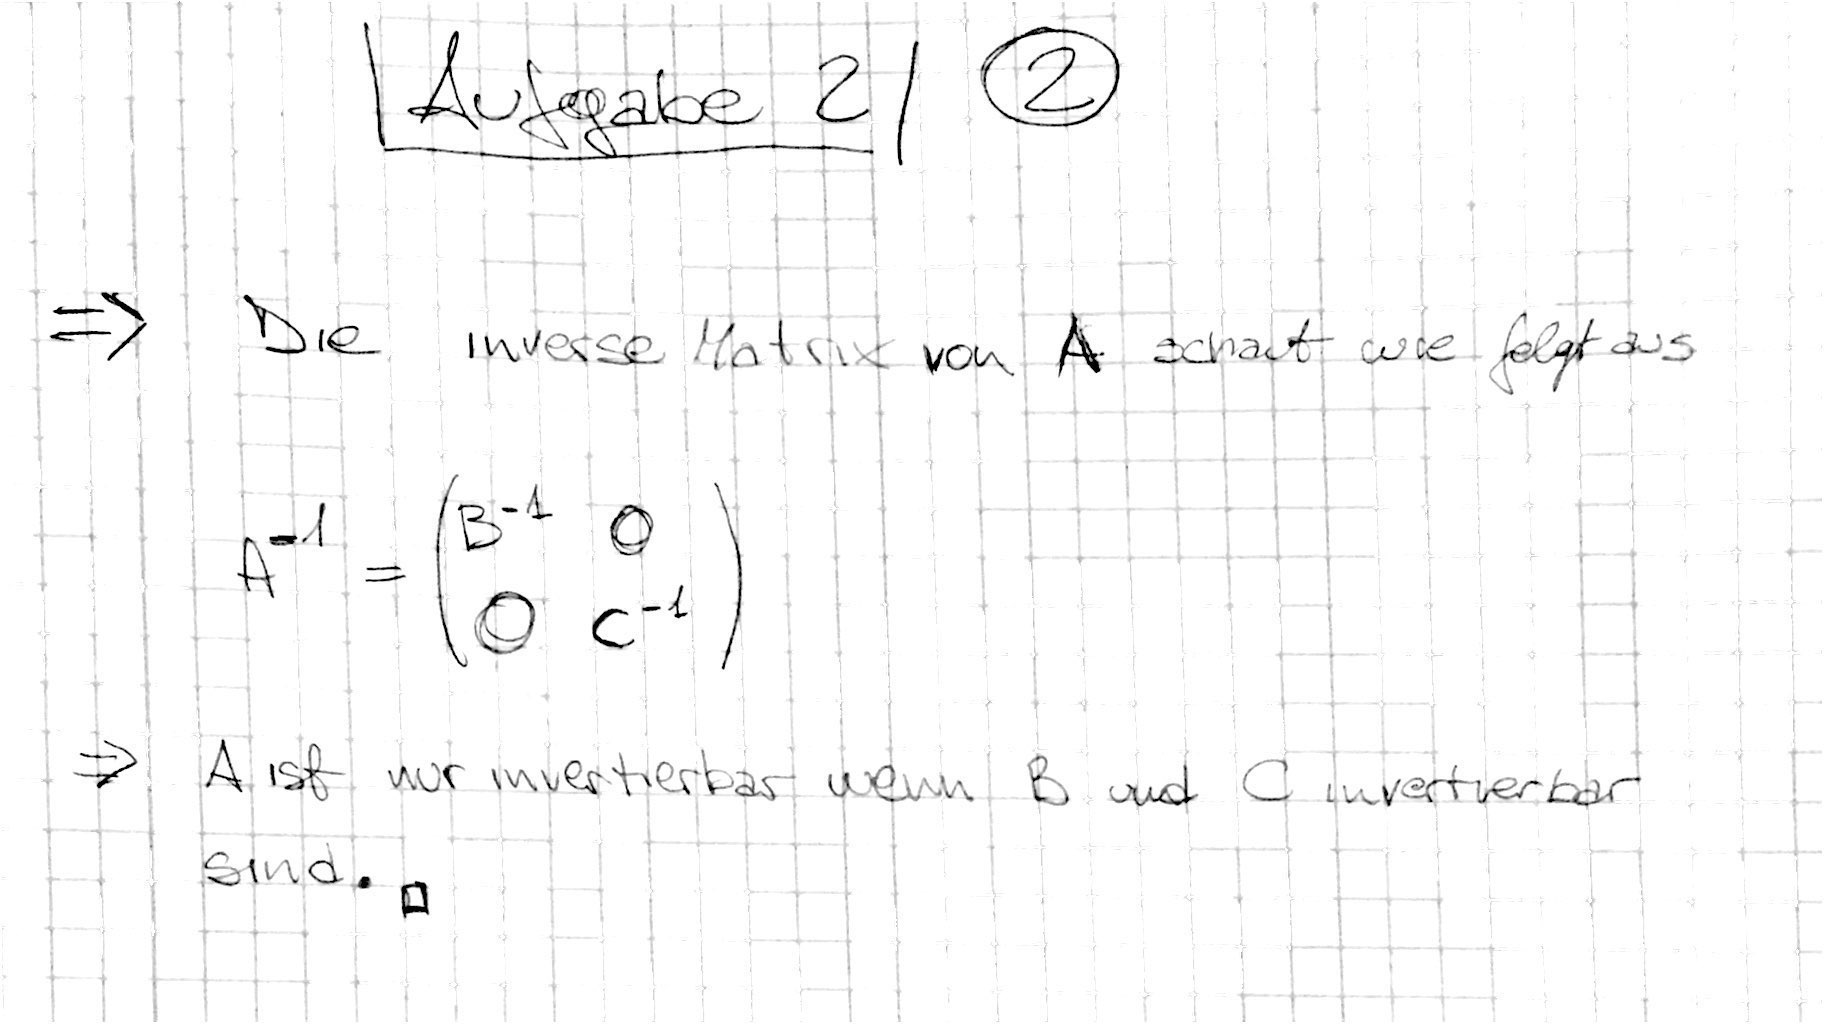 Aufgabe 2 2
=> Die inverse Matrix von A schaut wie folgt aus
A^-1 = (B^-1 0
0 C^-1)
=> A ist nur invertierbar wenn B und C invertierbar
sind. □